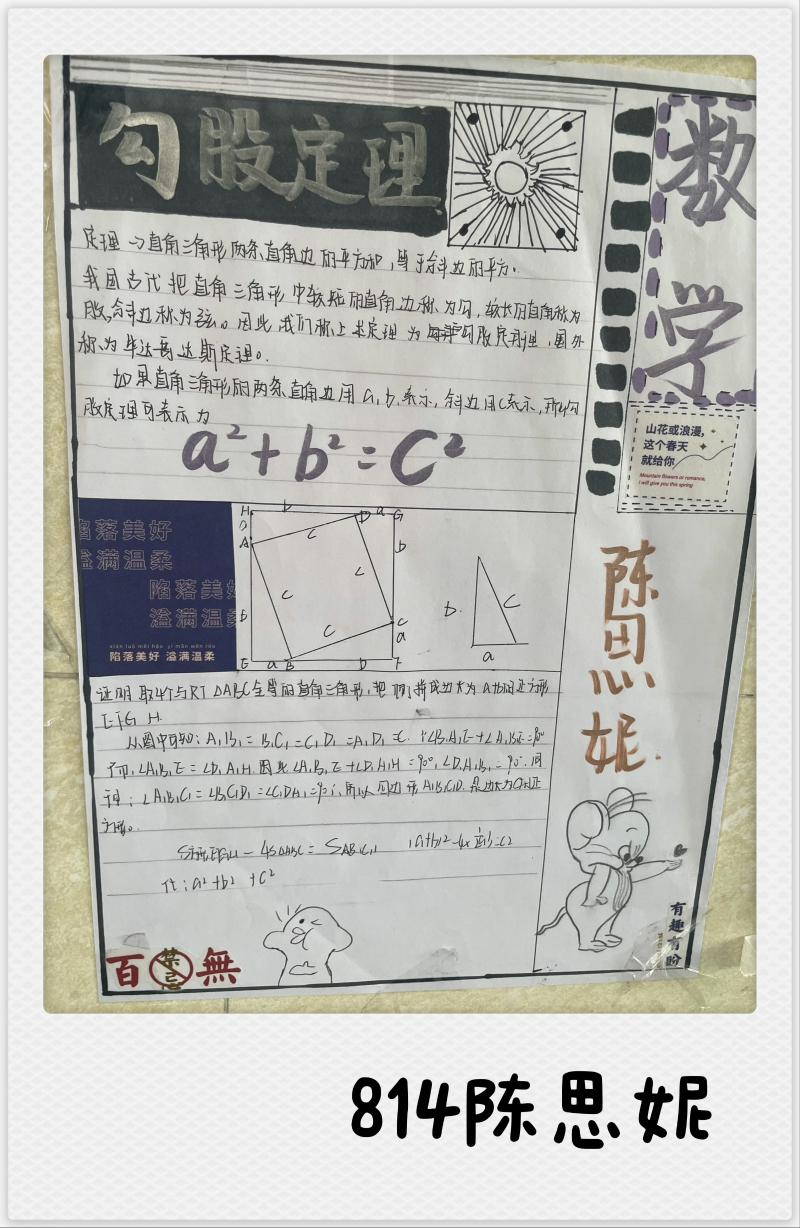 勾股定理
数学
定理→直角三角形两条直角边的平方和，等于斜边的平方。
我国古代把直角三角形中较短的直角边称为勾，较长的直角称为
股，斜边称为弦。因此，我们称上述定理为勾股定理，国外
称为毕达哥达斯定理。
如果直角三角形的两条直角边用a，b，表示，斜边用C表示，所以勾
股定理可表示为
a²+b²=C²
山花或浪漫，
这个春天
就给你
Mountain flowers or romance,
I will give you this spring
陷落美好
溢满温柔
陷落美好
溢满温柔
xiàn luò měi hǎo yì mǎn wēn róu
陷落美好 溢满温柔
H b D a G
a
A
C
b
C
C
C
C
b
a
E a B b F
b.
C
a
陈思妮.
证明 取4个与RT△ABC全等的直角三角形，把
E F G H.
从图中可知：A₁B₁=B₁C₁=C₁D₁=A₁D₁=C.
∠A₁B₁E=∠D₁A₁H.因此∠A₁B₁E+∠D₁A₁H=90°，∠D₁A₁B₁=90°.同
理：∠A₁B₁C₁=∠B₁C₁D₁=∠C₁DA₁=90°，所以四边形A₁B₁C₁D.是边长为C的正
方形。
a²+b²+C²
百禁忌無
有趣有盼
814陈思妮